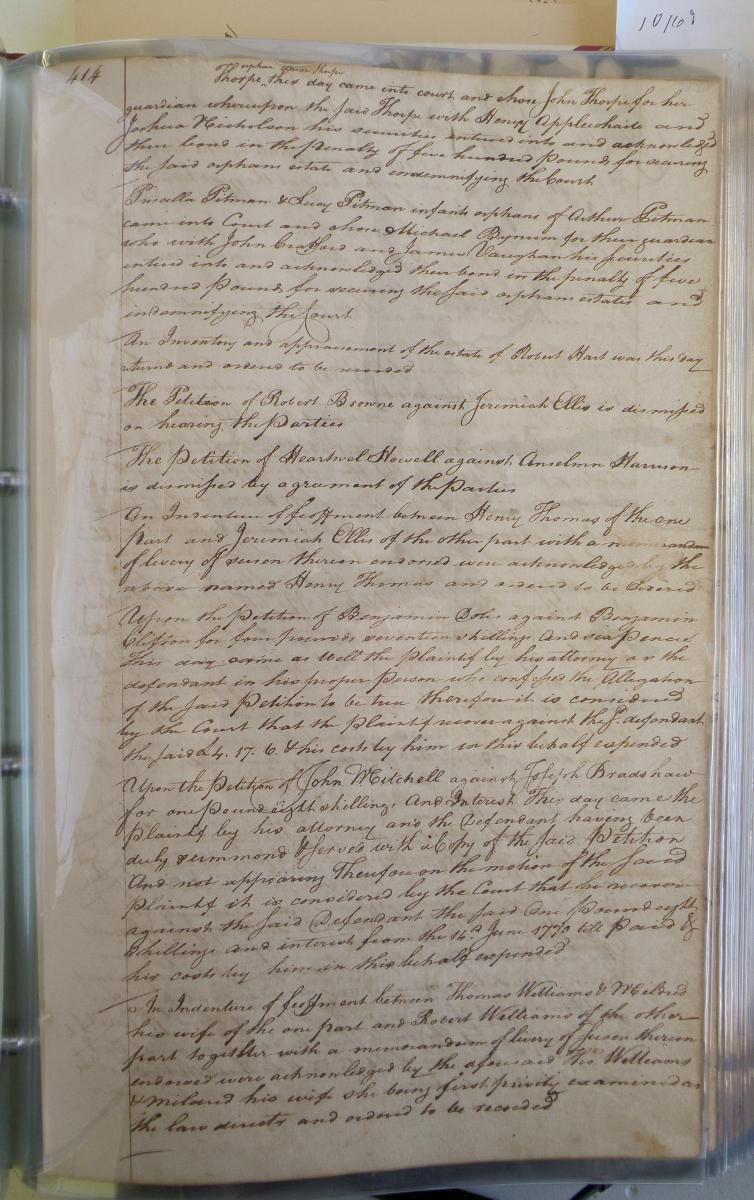 10/69
414
orphan
Thorpe
Thorpe this day came into court and chose John Thorpe for her
guardian whereupon the said Thorpe with Henry Applewhaite and
Joshua Nicholson his securities entered into and acknowledged
their bond in the penalty of five hundred pounds for securing
the said orphans estate and indemnifying the Court
Priscilla Pitman & Lucy Pitman infants orphans of Arthur Pitman
came into Court and chose Michael Bynum for their guardian
who with John Crafford and James Vaughan his securities
entered into and acknowledged their bond in the penalty of five
hundred pounds for securing the said orphans estates and
indemnifying the Court
An Inventory and appraisement of the estate of Robert Hart was this day
returned and ordered to be recorded
The Petition of Robert Browne against Jeremiah Ellis is dismissed
on hearing the Parties
The Petition of Heartwel Howell against Anselmn Harrison
is dismissed by agreament of the Parties
An Indenture of feoffment between Henry Thomas of the one
part and Jeremiah Ellis of the other part with a memorandum
of livery of seisen thereon endorsed were acknowledged by the
above named Henry Thomas and ordered to be
Upon the Petition of Benjamin against Benjamin
Clifton for four pounds seventeen shillings and six Pence
This day came as well the plaintif by his attorney as the
defendant in his proper Person who confessed the Allegation
of the said Petition to be true therefore it is considered
by the Court that the plaintif recover against the defendant
the said £4. 17. 6. & his costs by him in this behalf expended
Upon the Petition of John Mitchell against Joseph Bradshaw
for one pound eight shillings And Interest This day came the
Plaintif by his attorney and the Defendant having been
duly summond & served with a Copy of the said Petition
And not appearing Therefore on the motion of the said
plaintif it is considered by the Court that he recover
against the said Defendant the said One Pound eight
shillings and interest from the 14th June 1770 till Paid &
his costs by him in this behalf expended
An Indenture of feoffment between Thomas Williams & Meldred
his wife of the one part and Robert Williams of the other
part together with a memorandum of livery of seisen thereon
endorsed were acknowledged by the aforesaid Thos Williams
& Mildred his wife she being first privily examined as
the law directs and ordered to be recorded